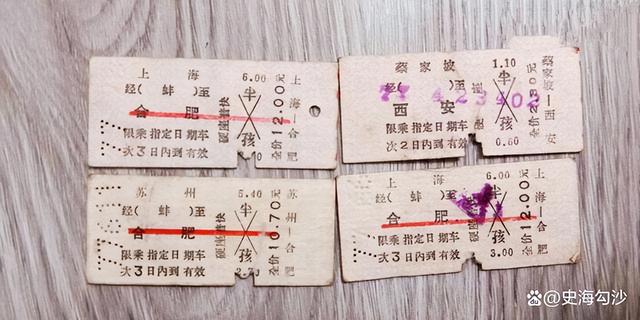 上海 6.00 上海—合肥
经(蚌)至 半
合肥 孩 硬座普快 全价12.00元
限乘指定日期车
次3日内到有效
蔡家坡 1.10 蔡家坡—西安
经( )至 半
西安 孩
限乘指定日期车
次2日内到有效 0.60
苏州 5.40 苏州—合肥
经(蚌)至 半
合肥 孩 硬座普快 全价10.70元
限乘指定日期车
次3日内到有效
上海 6.00 上海—合肥
经(蚌)至 半
合肥 孩 全价12.00元
限乘指定日期车
次3日内到有效 3.00
Bai百度 @史海勾沙